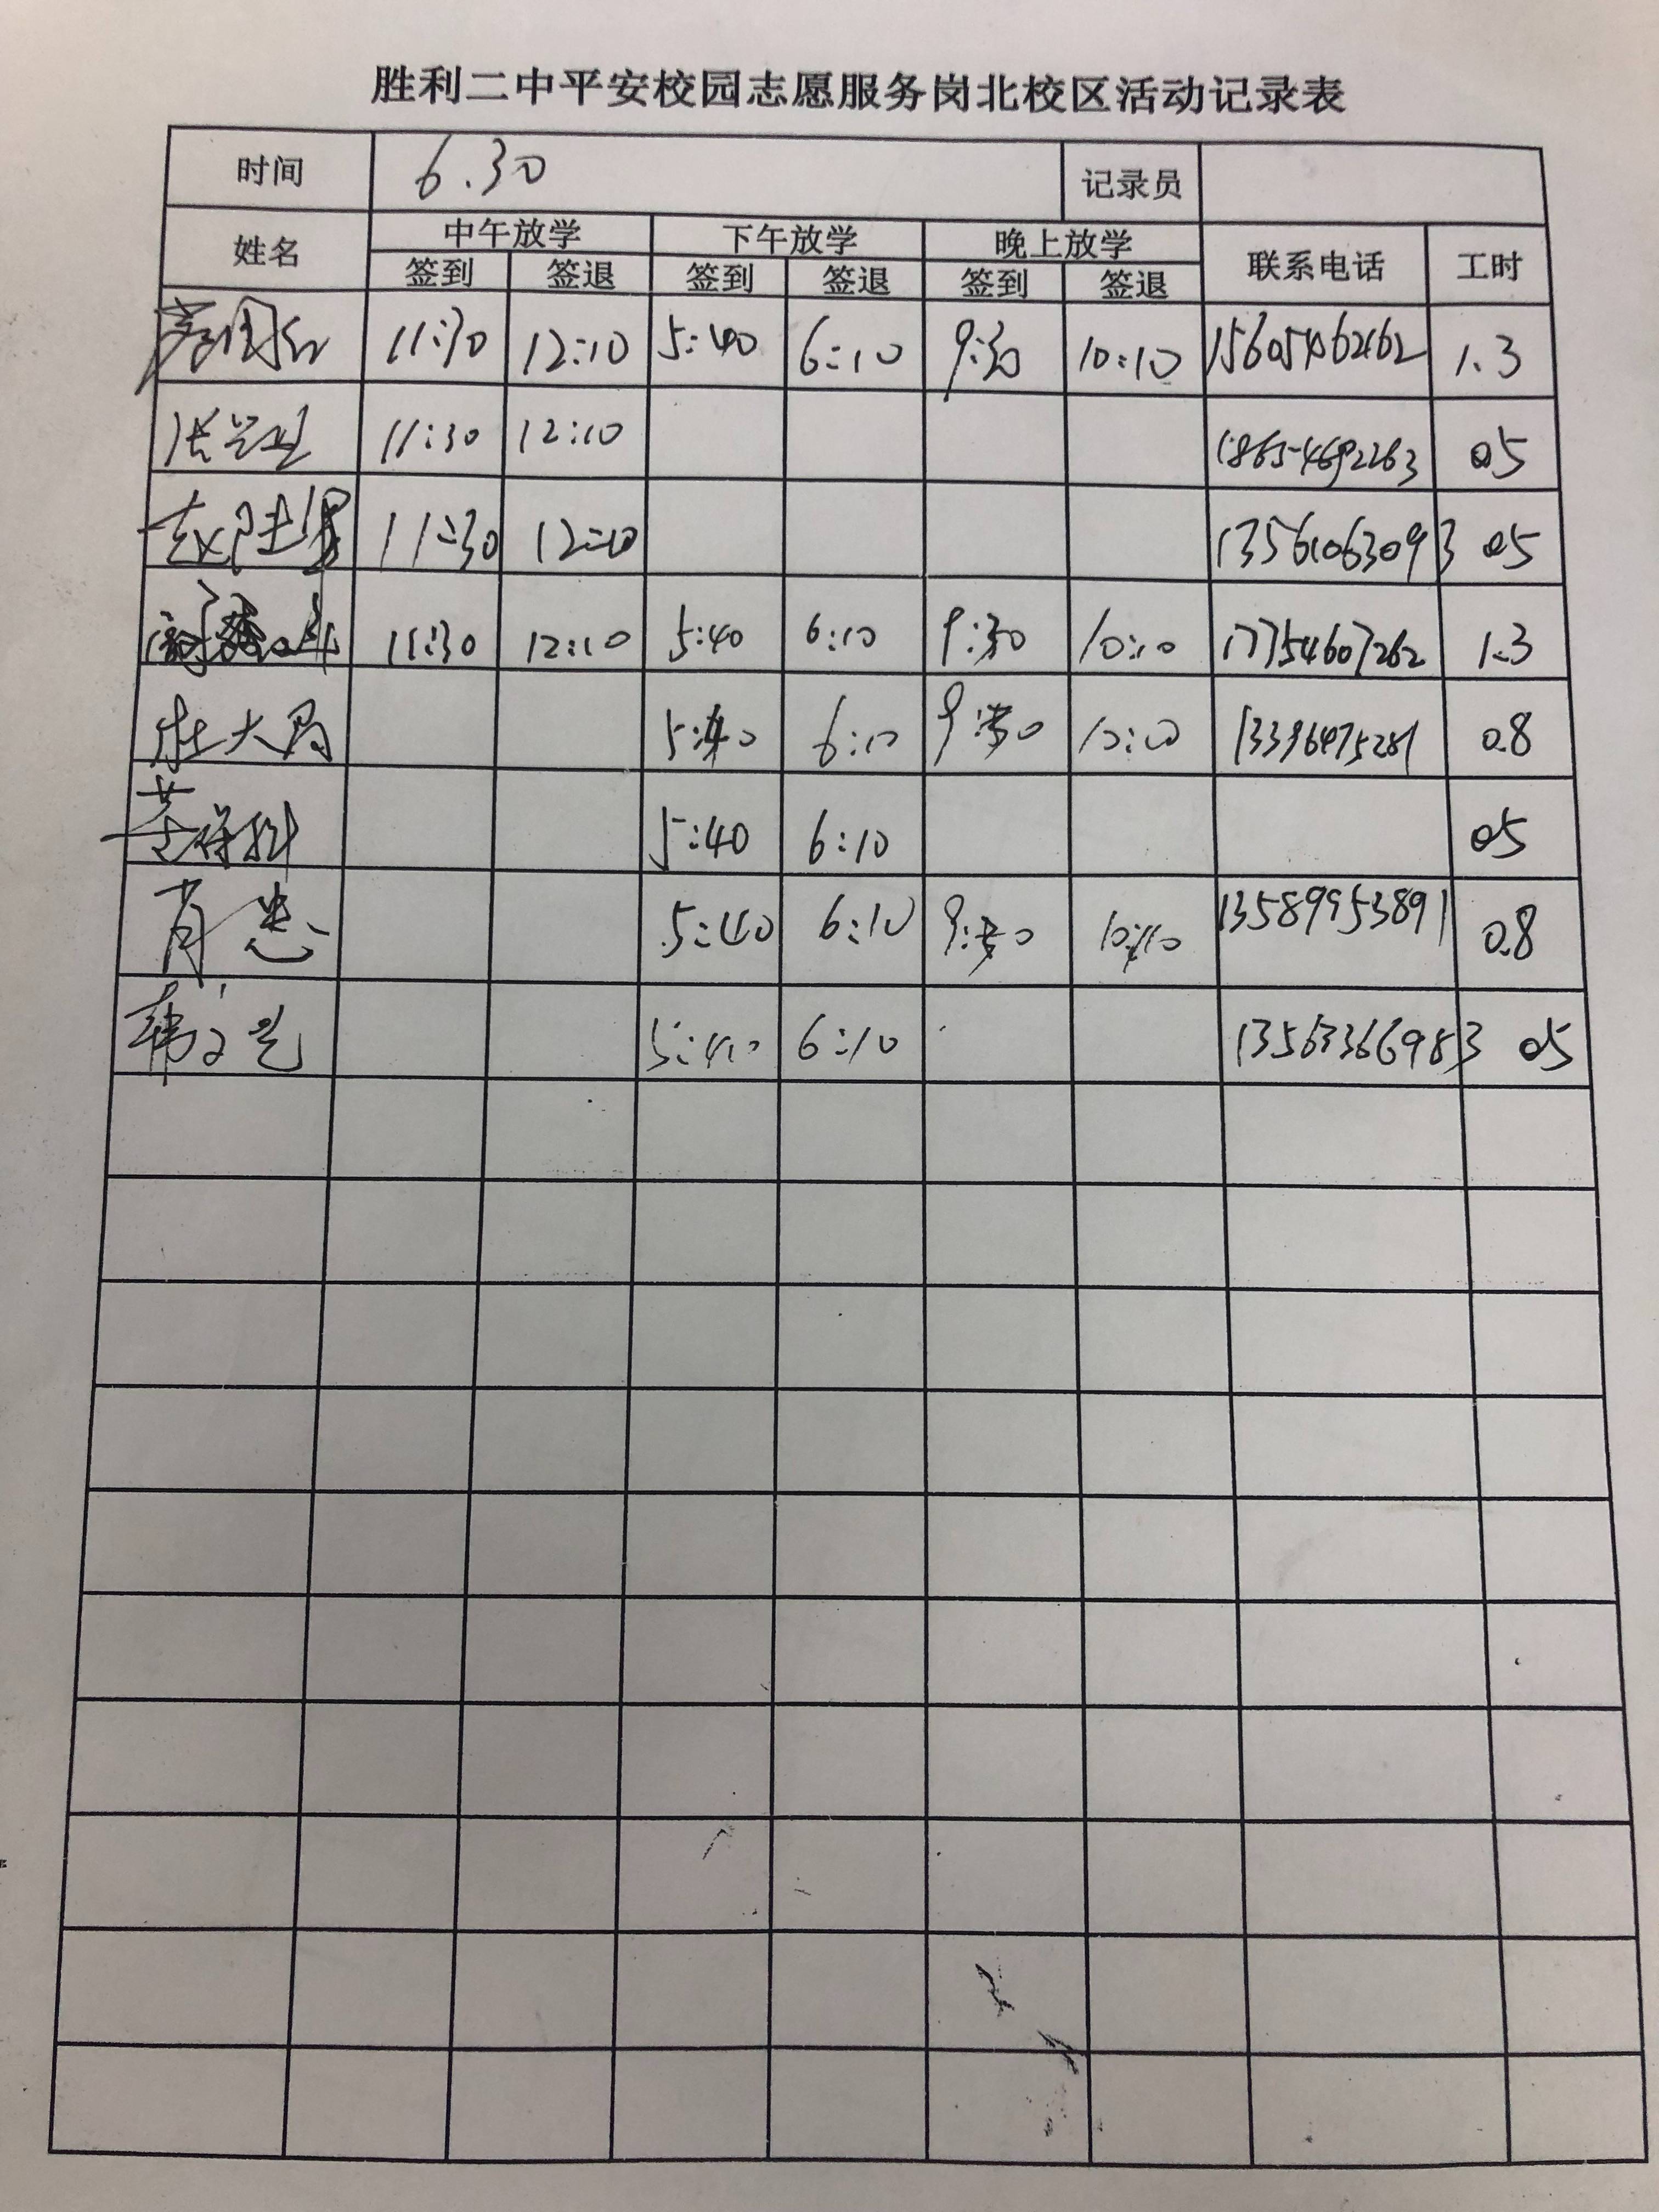 胜利二中平安校园志愿服务岗北校区活动记录表
时间 6.30 记录员
姓名 中午放学 下午放学 晚上放学 联系电话 工时
签到 签退 签到 签退 签到 签退
11:30 12:10 5:40 6:10 9:30 10:10 15605462162 1.3
11:30 12:10 18654692263 05
11:30 12:10 13561063093 05
11:30 12:10 5:40 6:10 9:30 10:10 17754607262 1.3
杜大局 5:40 6:10 9:30 10:10 13396475281 0.8
5:40 6:10 05
肖忠 5:40 6:10 9:30 10:10 13589953891 0.8
5:40 6:10 13563366983 05